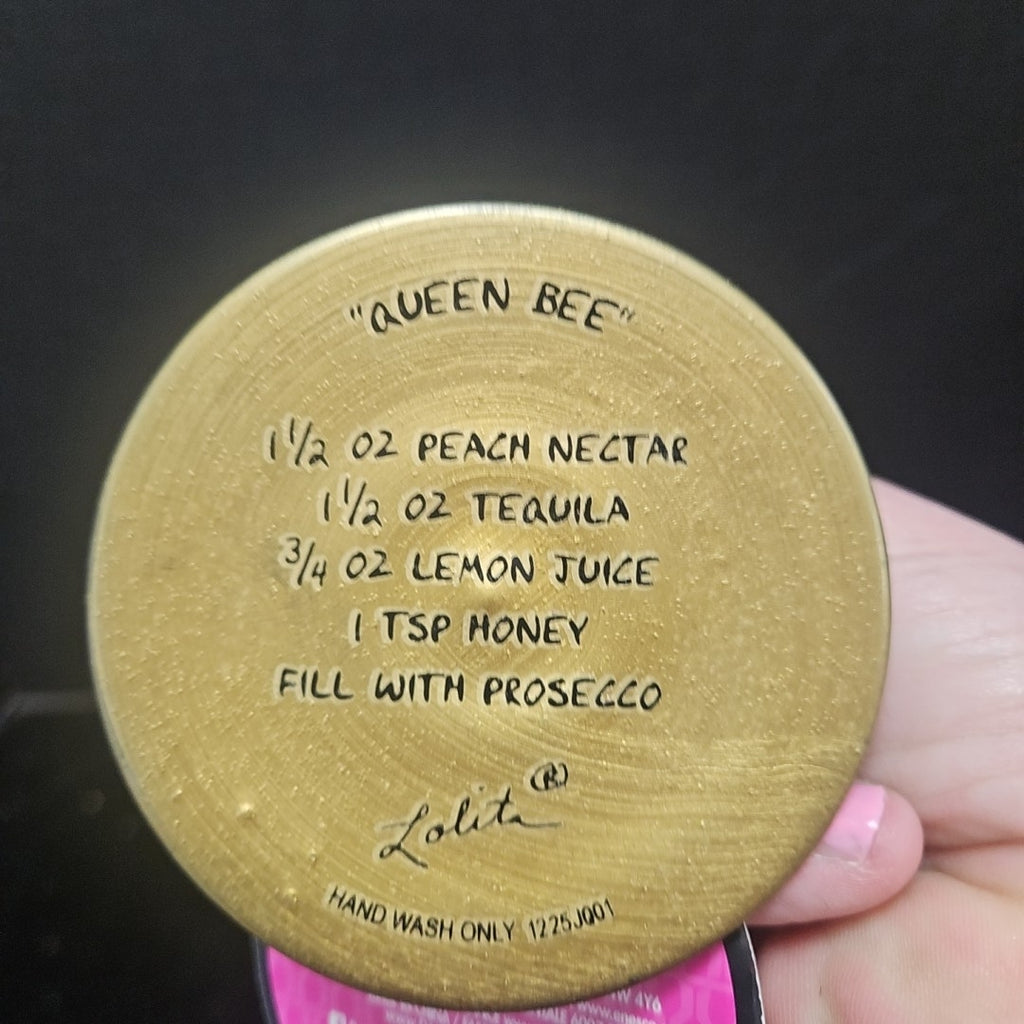 "QUEEN BEE"
1 1/2 OZ PEACH NECTAR
1 1/2 OZ TEQUILA
3/4 OZ LEMON JUICE
1 TSP HONEY
FILL WITH PROSECCO
Lolita®
HAND WASH ONLY 1225JQ01
4Y6